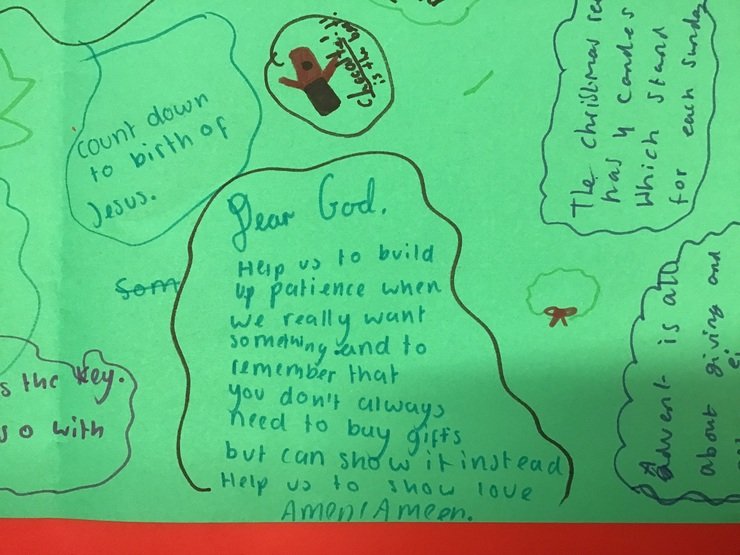 count down
to birth of
Jesus.
Chocolate
is the best!
The christmas
has 4 candes
Which stand
for each Sunday
Dear God.
Help us to build
up patience when
we really want
something and to
remember that
you don't always
need to buy gifts
but can show it instead
Help us to show love
Amen/Ameen.
Som
s the key.
so with
Advent is all
about giving and